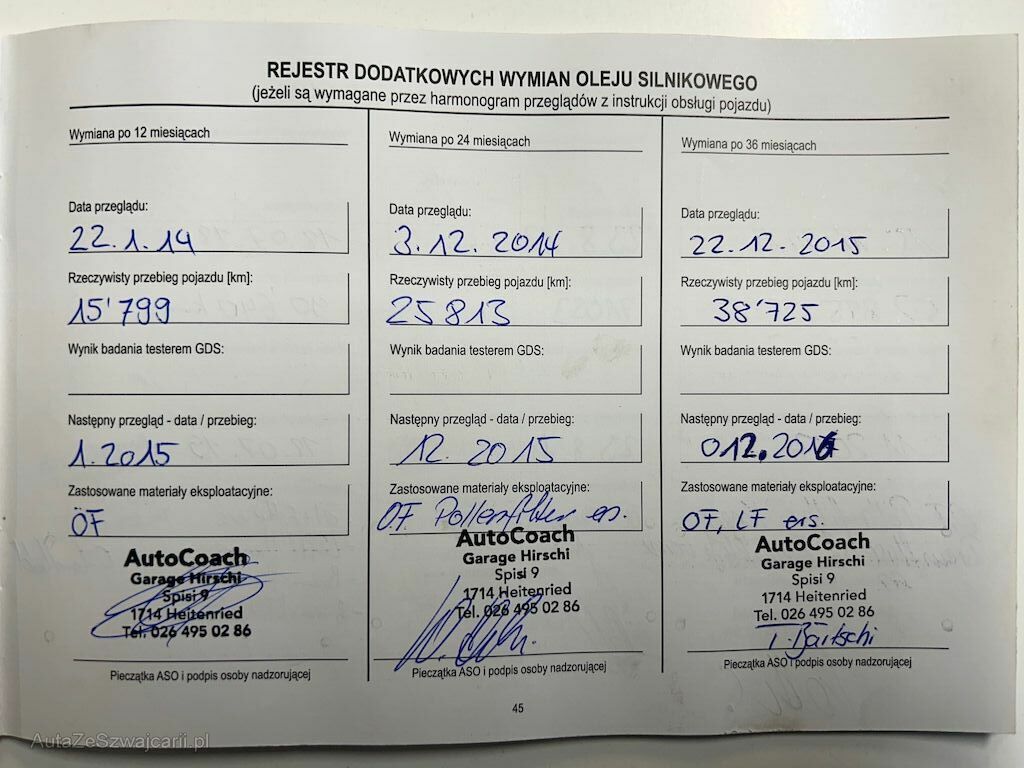 REJESTR DODATKOWYCH WYMIAN OLEJU SILNIKOWEGO
(jeżeli są wymagane przez harmonogram przeglądów z instrukcji obsługi pojazdu)
Wymiana po 12 miesiącach
Data przeglądu:
22.1.14
Rzeczywisty przebieg pojazdu [km]:
15'799
Wynik badania testerem GDS:
Następny przegląd - data / przebieg:
1.2015
Zastosowane materiały eksploatacyjne:
ÖF
AutoCoach
Garage Hirschi
Spisi 9
1714 Heitenried
Tel. 026 495 02 86
Pieczątka ASO i podpis osoby nadzorującej
Wymiana po 24 miesiącach
Data przeglądu:
3.12.2014
Rzeczywisty przebieg pojazdu [km]:
25813
Wynik badania testerem GDS:
Następny przegląd - data / przebieg:
12.2015
Zastosowane materiały eksploatacyjne:
ÖF Pollenfilter ers.
AutoCoach
Garage Hirschi
Spisi 9
1714 Heitenried
Tel. 026 495 02 86
Pieczątka ASO i podpis osoby nadzorującej
Wymiana po 36 miesiącach
Data przeglądu:
22.12.2015
Rzeczywisty przebieg pojazdu [km]:
38'725
Wynik badania testerem GDS:
Następny przegląd - data / przebieg:
012.2016
Zastosowane materiały eksploatacyjne:
ÖF, LF ers.
AutoCoach
Garage Hirschi
Spisi 9
1714 Heitenried
Tel. 026 495 02 86
T. Bärtschi
Pieczątka ASO i podpis osoby nadzorującej
45
AutaZeSzwajcarii.pl